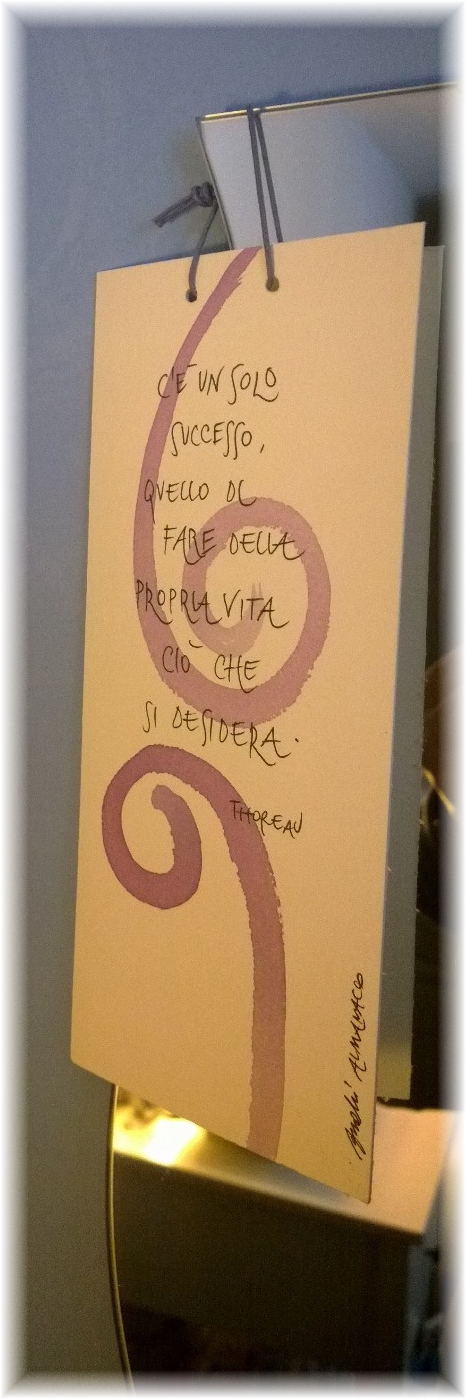 C'È UN SOLO
SUCCESSO,
QUELLO DI
FARE DELLA
PROPRIA VITA
CIÒ CHE
SI DESIDERA.
THOREAU